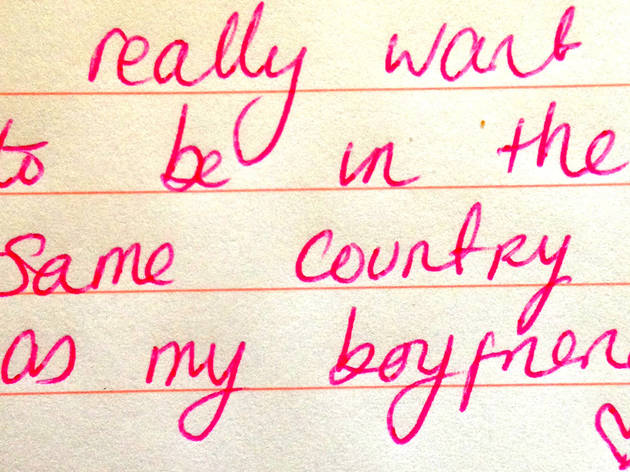 really want
to be in the
same country
as my boyfrien